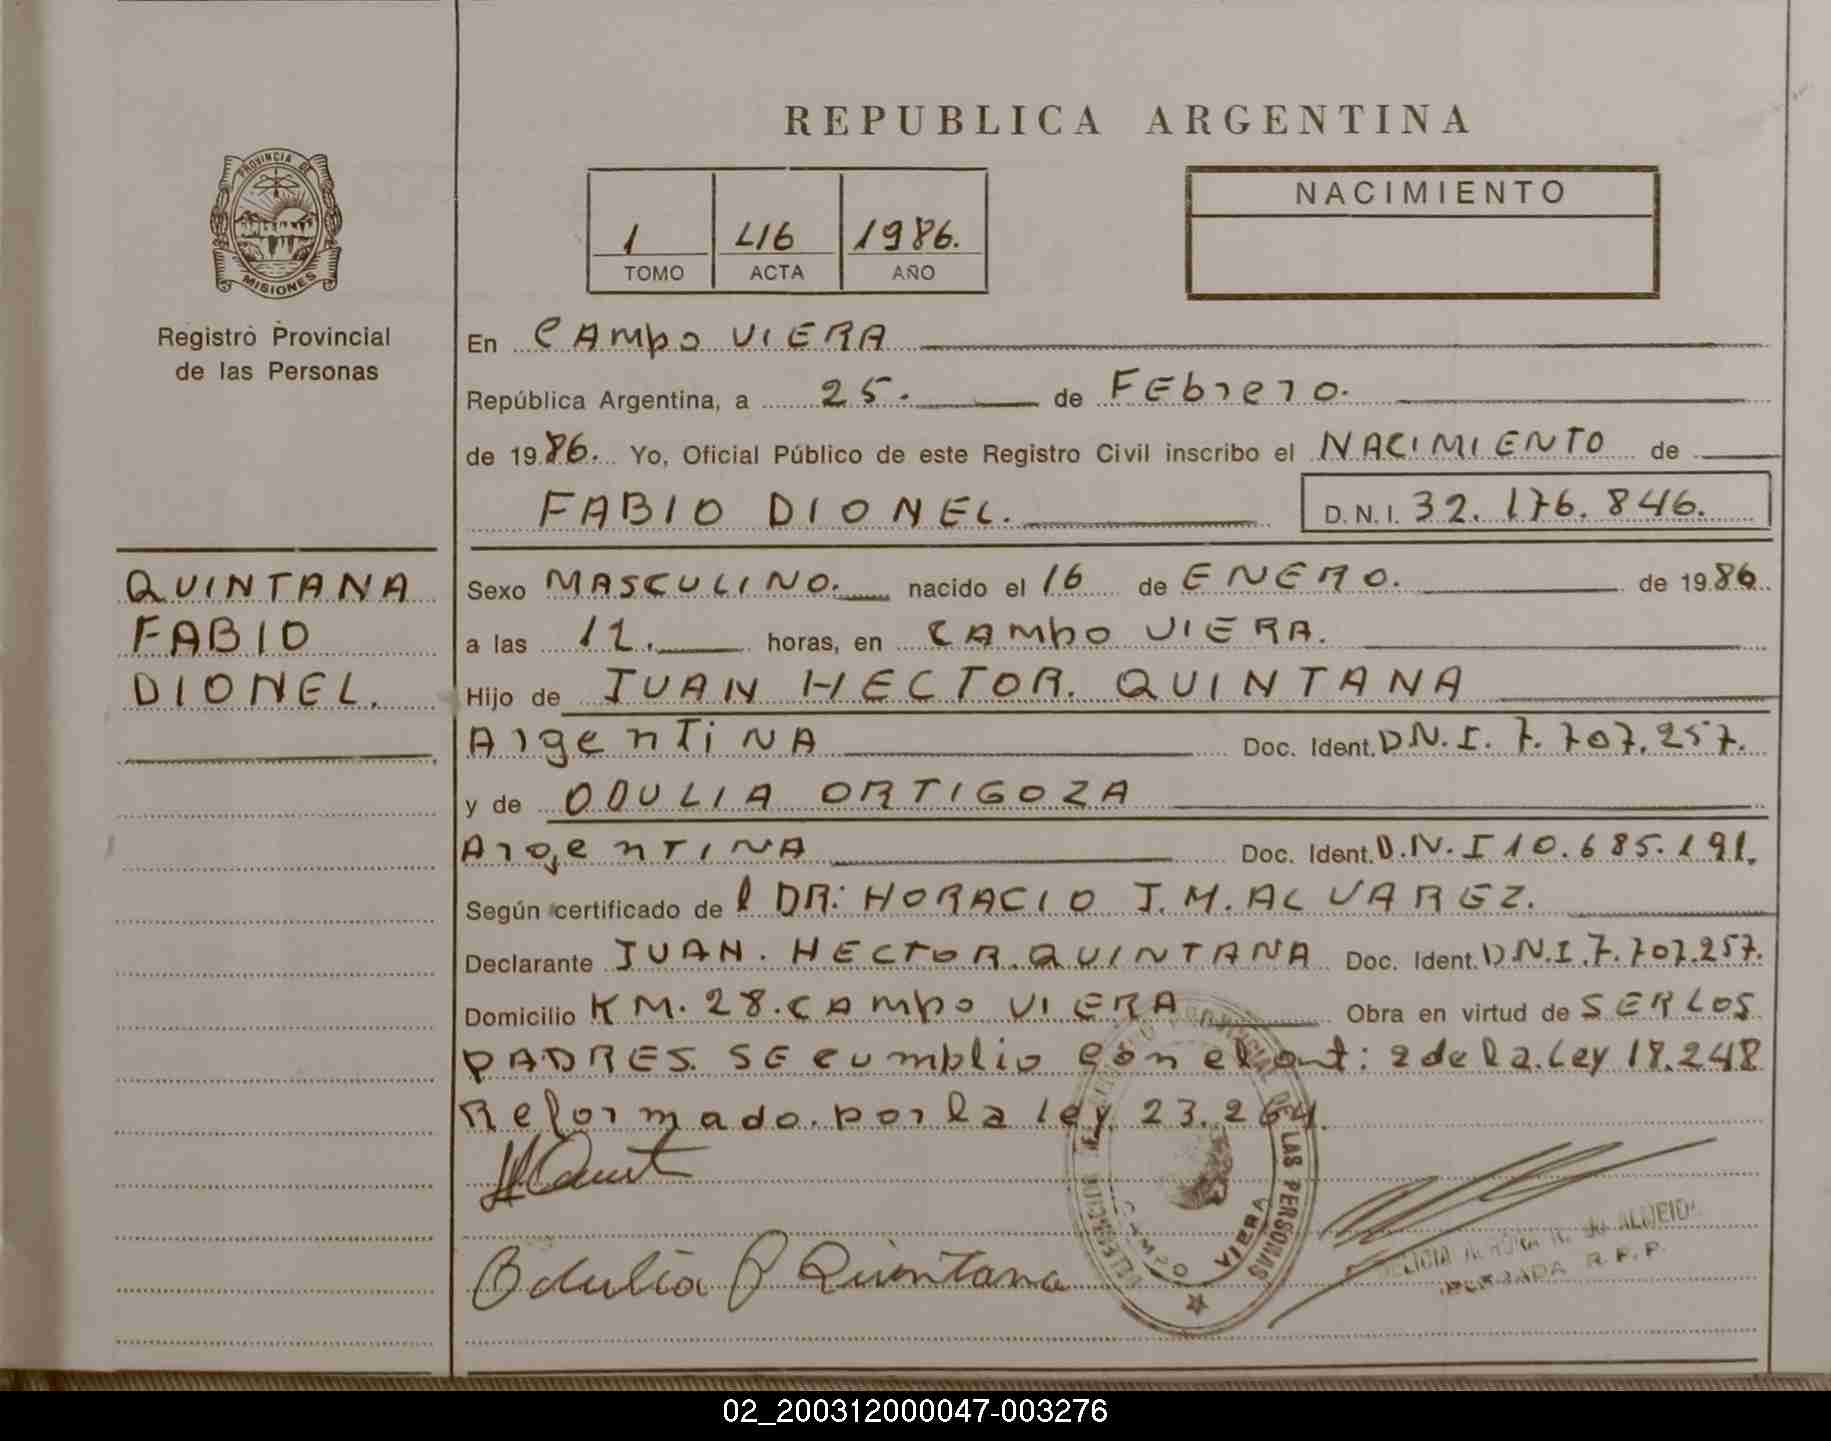 REPUBLICA ARGENTINA
PROVINCIA DE
MISIONES
Registro Provincial
de las Personas
1 416 1986.
TOMO ACTA AÑO
NACIMIENTO
En CAMpo VIERA
República Argentina, a 25. de FEbrero.
de 1986. Yo, Oficial Público de este Registro Civil inscribo el NACIMIENTO de
FABIO DIONEL. D.N.I. 32.176.846.
QUINTANA
FABIO
DIONEL.
Sexo MASCULINO. nacido el 16 de ENERO. de 1986
a las horas, en CAMpo VIERA.
Hijo de JUAN HECTOR. QUINTANA
ArgenTiNA Doc. Ident. D.N.I. 7.707.257.
y de ODULIA ORTIGOZA
ArgenTINA Doc. Ident. D.N.I 10.685.191.
Según certificado de l DR: HORACIO J.M.ALVAREZ.
Declarante JUAN. HECTOR.QUINTANA Doc. Ident. D.N.I.7.707.257.
Domicilio KM.28.CAMpo VIERA Obra en virtud de SER LOS
PADRES. SE cumplio con el art: 2 de la.Ley 18.248
Reformado.por la ley 23.264.
Odulia O Quintana
DE LAS PERSONAS
CAMPO VIERA
ALMEIDA
R.P.P.
02_200312000047-003276